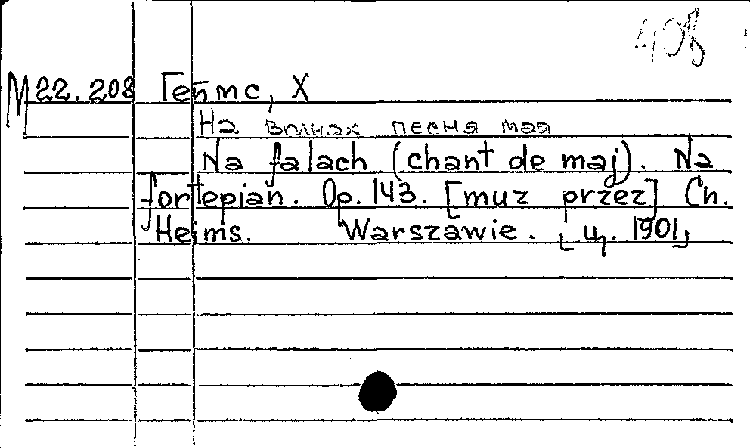 408
M22.208 Геймс, Х
На волнах песня мая
Na falach (chant de maj). Na
fortepian. Op. 143. [muz przez] Ch.
Heims. Warszawie. [ц. 1901]